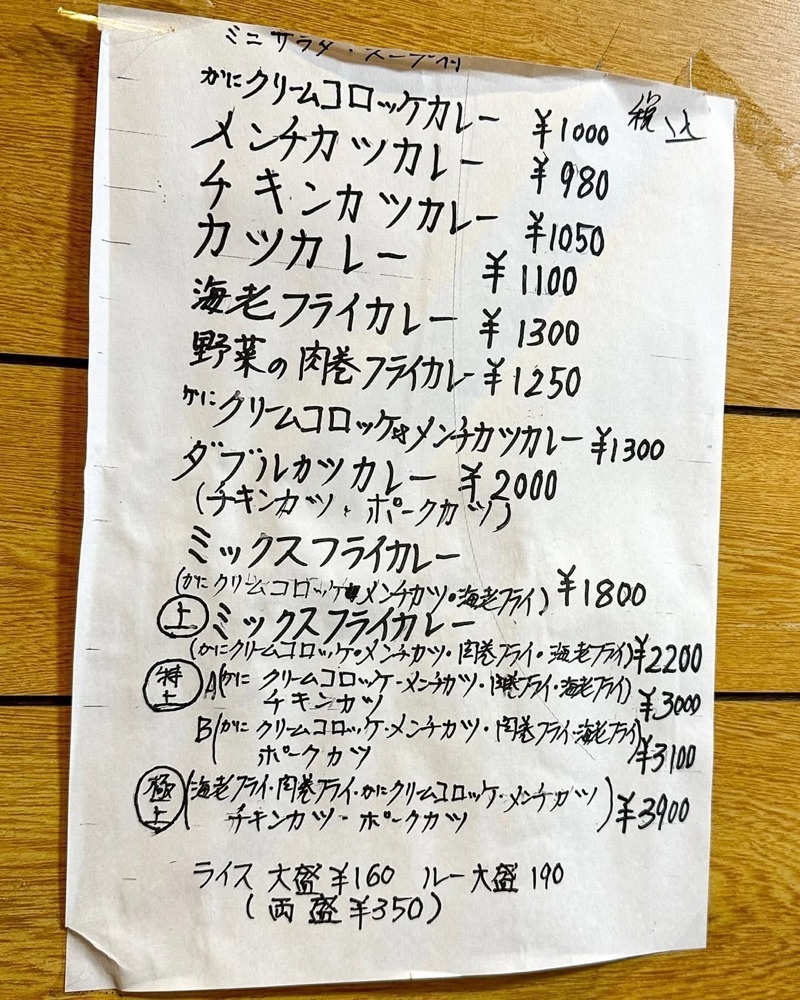 ミニサラダ・スープ付
税込
かにクリームコロッケカレー ¥1000
メンチカツカレー ¥980
チキンカツカレー ¥1050
カツカレー ¥1100
海老フライカレー ¥1300
野菜の肉巻フライカレー ¥1250
かにクリームコロッケ&メンチカツカレー ¥1300
ダブルカツカレー ¥2000
(チキンカツ・ポークカツ)
ミックスフライカレー
(かにクリームコロッケ・メンチカツ・海老フライ) ¥1800
上 ミックスフライカレー
(かにクリームコロッケ・メンチカツ・肉巻フライ・海老フライ) ¥2200
特上 A(かに クリームコロッケ・メンチカツ・肉巻フライ・海老フライ)
チキンカツ ¥3000
B(かに クリームコロッケ・メンチカツ・肉巻フライ・海老フライ)
ポークカツ ¥3100
極上 (海老フライ・肉巻フライ・かにクリームコロッケ・メンチカツ
チキンカツ・ポークカツ) ¥3900
ライス 大盛 ¥160 ルー大盛 190
(両盛 ¥350)